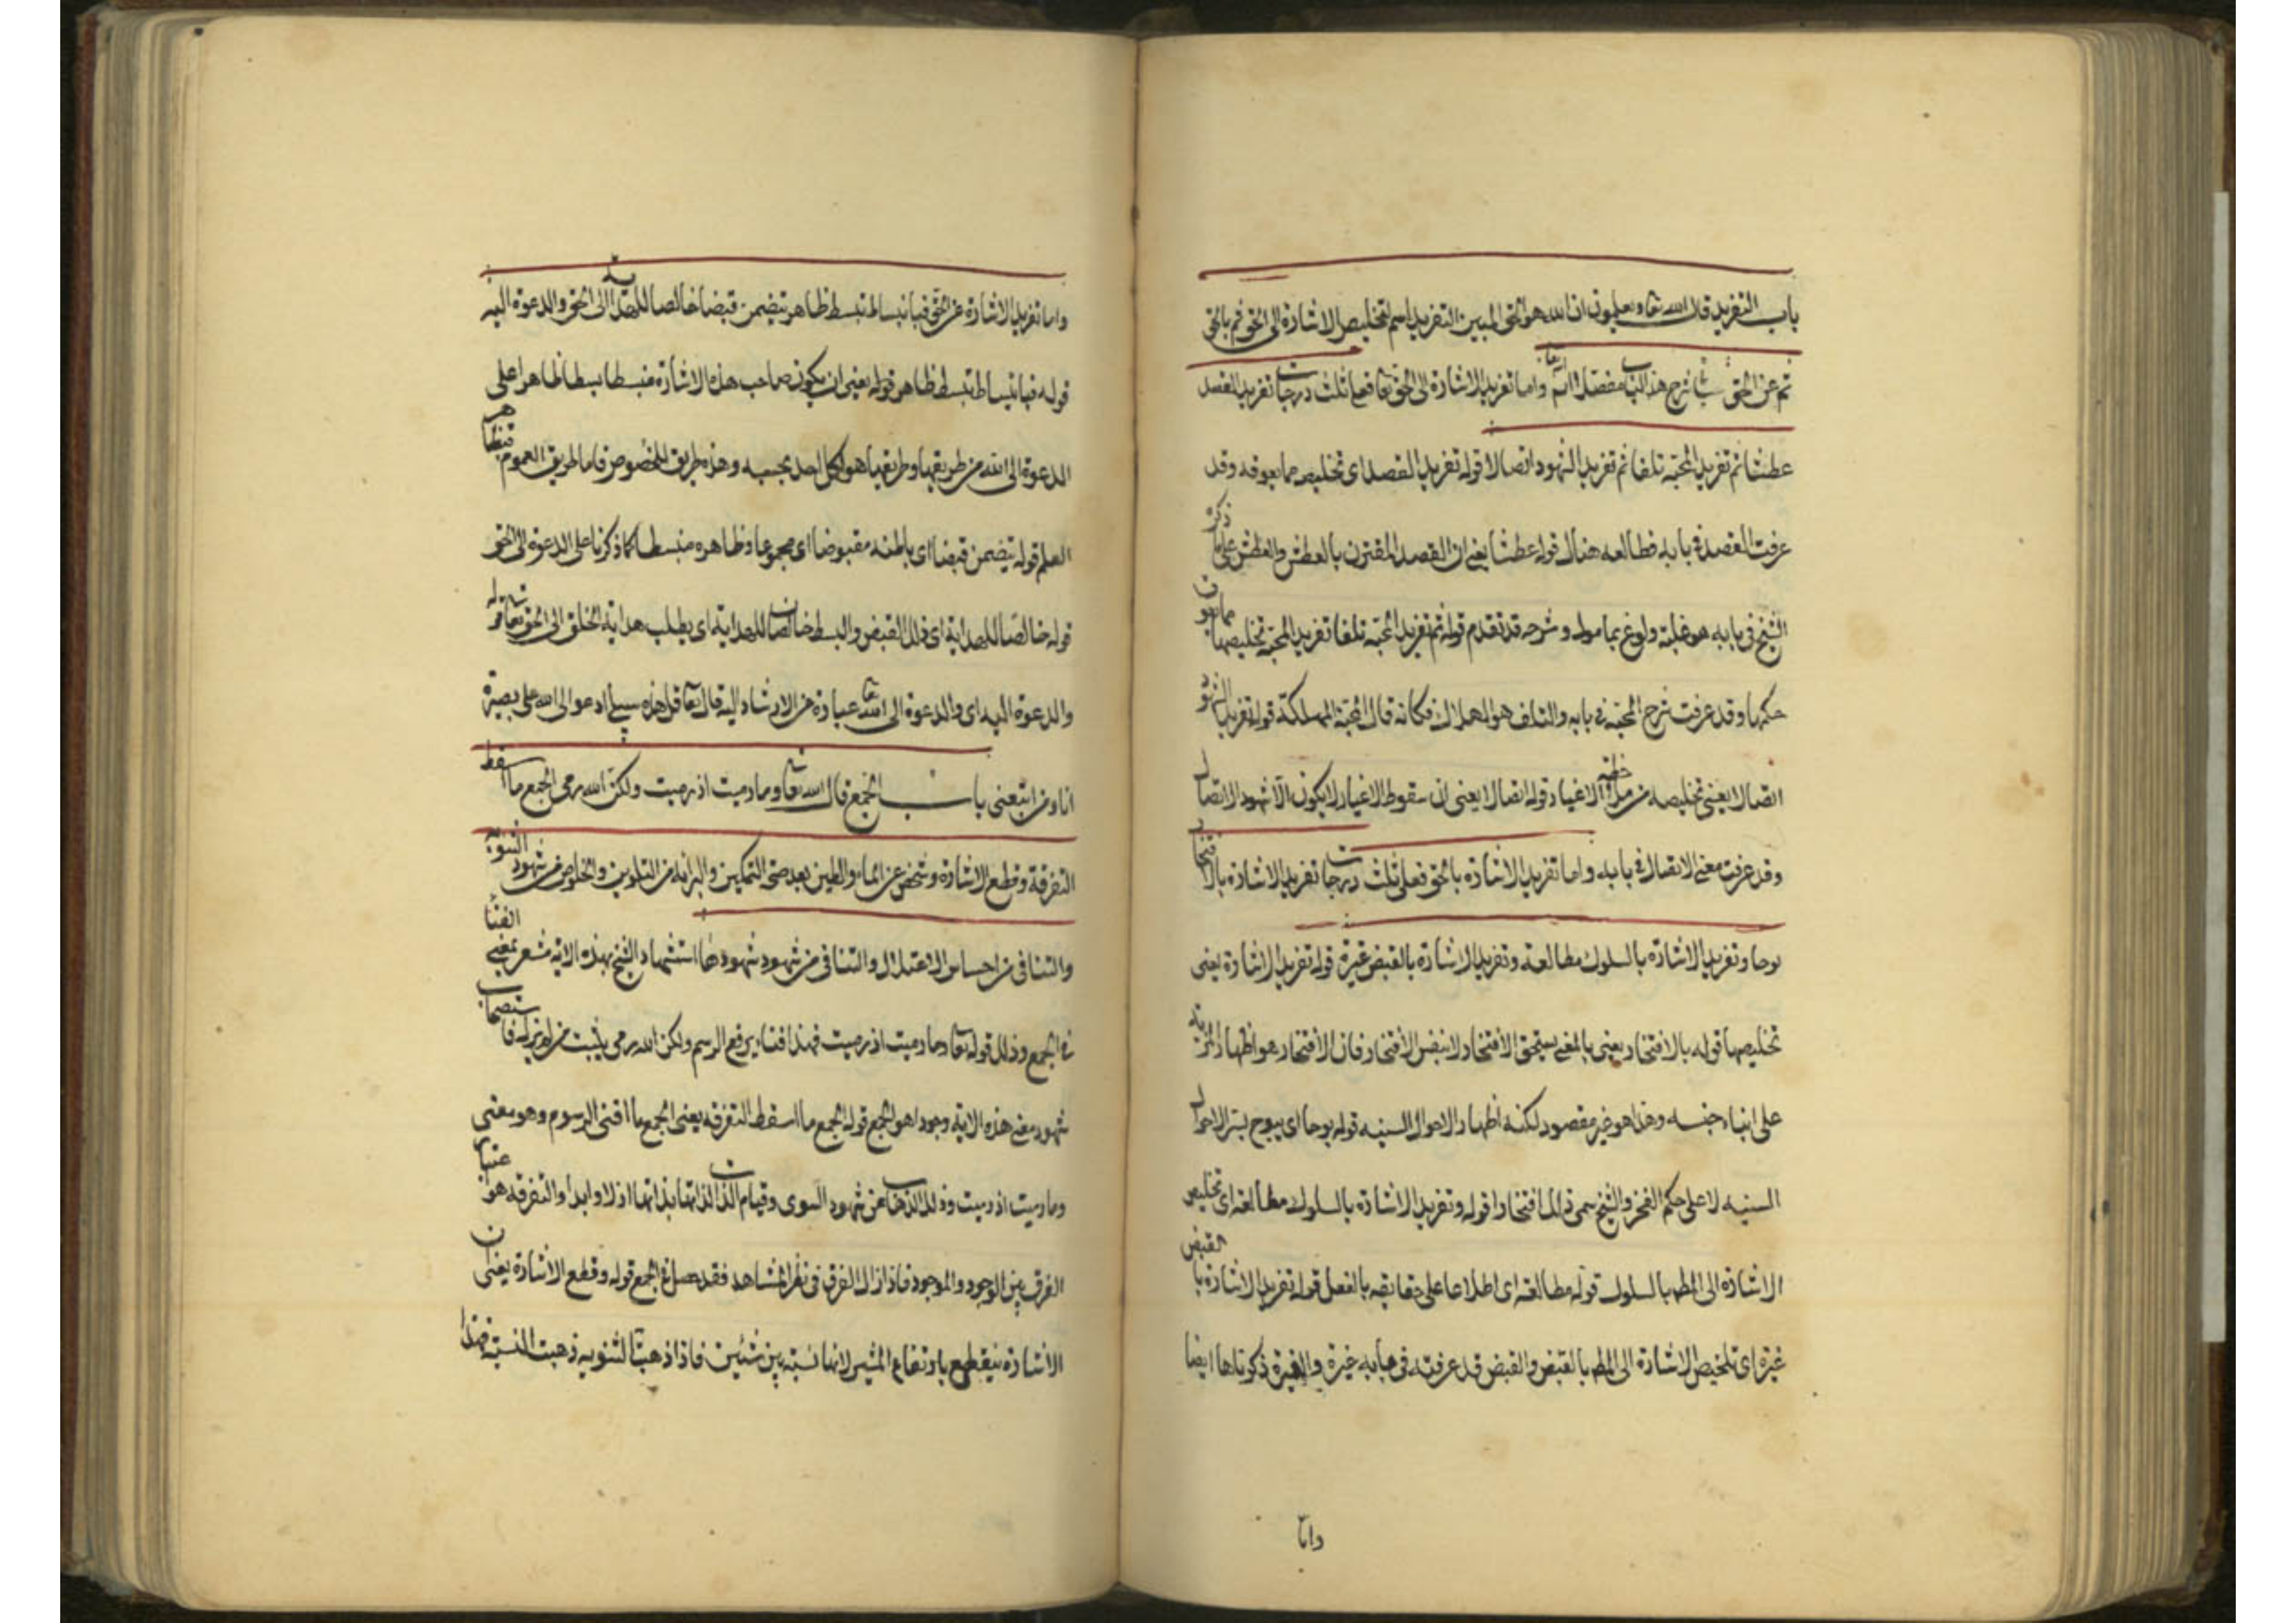 باب التفريد قال الله تعا ويعلمون ان الله هو الحق المبين التفريد اسم لتخليص الاشارة الى الحق ثم بالحق
ثم عن الحق شرح هذا الباب مفصلا واما تفريد الاشارة الى الحق تعا فعلى ثلث درجات تفريد القصد
عطشا ثم تفريد المحبة تلفا ثم تفريد الشهود اتصالا قوله تفريد القصد اى تخليصه مما يعوقه وقد
عرفت القصد فى بابه فطالعه هناك قوله عطشا يعنى ان القصد المقترن بالعطش والعطش على ما ذكره
الشيخ فى بابه هو غلبة ولوع بمامول وشرحه قد تقدم قوله ثم تفريد المحبة تلفا تفريد المحبة تخليصها مما يعو ن
حكمها وقد عرفت شرح المحبة فى بابه والتلف هو الهلاك فكانه قال المحبة المهلكة قوله تفريد الشهود
اتصالا يعنى تخليصه من ملاحظة الاغيار قوله اتصالا يعنى ان سقوط الاغيار لا يكون الا شهود الاتصال
وقد عرفت معنى الاتصال فى بابه واما تفريد الاشارة بالحق فعلى ثلث درجات تفريد الاشارة بالافتخار
بوحا وتفريد الاشارة بالسلوك مطالعة وتفريد الاشارة بالقبض غيرة قوله تفريد الاشارة يعنى
تخليصها قوله بالافتخار يعنى بالمعنى يستحق الافتخار لا بنفس الافتخار فان الافتخار هو اظهار المزية
على ابناء جنسه وهذا هو غير مقصود لكنه اظهار الاحوال السنيه قوله بوحا اى يبوح بسر الاحوال
السنيه لا على حكم الفخر والشيخ سمى ذلك افتخارا قوله وتفريد الاشارة بالسلوك مطالعة اى تخليص
الاشارة الى المط بالسلوك قوله مطالعة اى اطلاعا على حقايقه بالفعل قوله تفريد الاشارة بالقبض
غيرة اى تلخيص الاشارة الى المط بالقبض والقبض قد عرفته فى بابه غيرة والغيرة ذكرناها ايضا
واما
واما تفريد الاشارة عن الحق فبانبساط تبسط ظاهر يتضمن قبضا خالصا للهداية الى الحق والدعوة اليه
قوله فبانبساط تبسط ظاهر قوله يعنى ان يكون صاحب هذه الاشارة منبسطا بسطا ظاهرا على
الدعوة الى الله من طريقها وطريقها هو لكل احد بحسبه وهذه طريق الخصوص فاما طريق العموم فبظاهر
العلم قوله يتضمن قبضا اى باطنه مقبوضا اى مجموعا وظاهره منبسطا كما ذكرنا على الدعوة الى الحق
قوله خالصا للهداية اى ذلك القبض والبسط خالصان للهداية اى يطلب هداية الخلق الى الحق تعا قوله
والدعوة اليه اى والدعوة الى الله تعا عبارة عن الارشاد اليه قال تعا قل هذه سبيلى ادعوا الى الله على بصيرة
انا ومن اتبعنى باب الجمع قال الله تعا وما رميت اذ رميت ولكن الله رمى الجمع ما اسقط
التفرقة وقطع الاشارة وشخص عن الماء والطين بعد صحة التمكين والبراءة من التلوين والخلاص من شهود الثنوية
والتنافى من احساس الاعتلال والتنافى من شهود شهودها استشهاد الشيخ بهذه الاية مشعر بمعنى الفناء
فى الجمع وذلك قوله تعا وما رميت اذ رميت فهذا فناء يرفع الرسم ولكن الله رمى يثبت من لم يزل فاستصحاب
شهود معنى هذه الاية وجودا هو الجمع قوله الجمع ما اسقط التفرقه يعنى الجمع ما افنى الرسوم وهو معنى
وما رميت اذ رميت وذلك الذهاب عن شهود السوى وقيام الذات لذاتها بذاتها ازلا وابدا والتفرقه هو اعتبار
الفرق بين الوجود والموجود فاذا زال الفرق فى نظر المشاهد فقد حصل فى الجمع قوله وقطع الاشارة يعنى ان
الاشارة ينقطع بارتفاع المشير لانها نسبة بين شيئين فاذا ذهبت الثنويه ذهبت النسبة فهذا